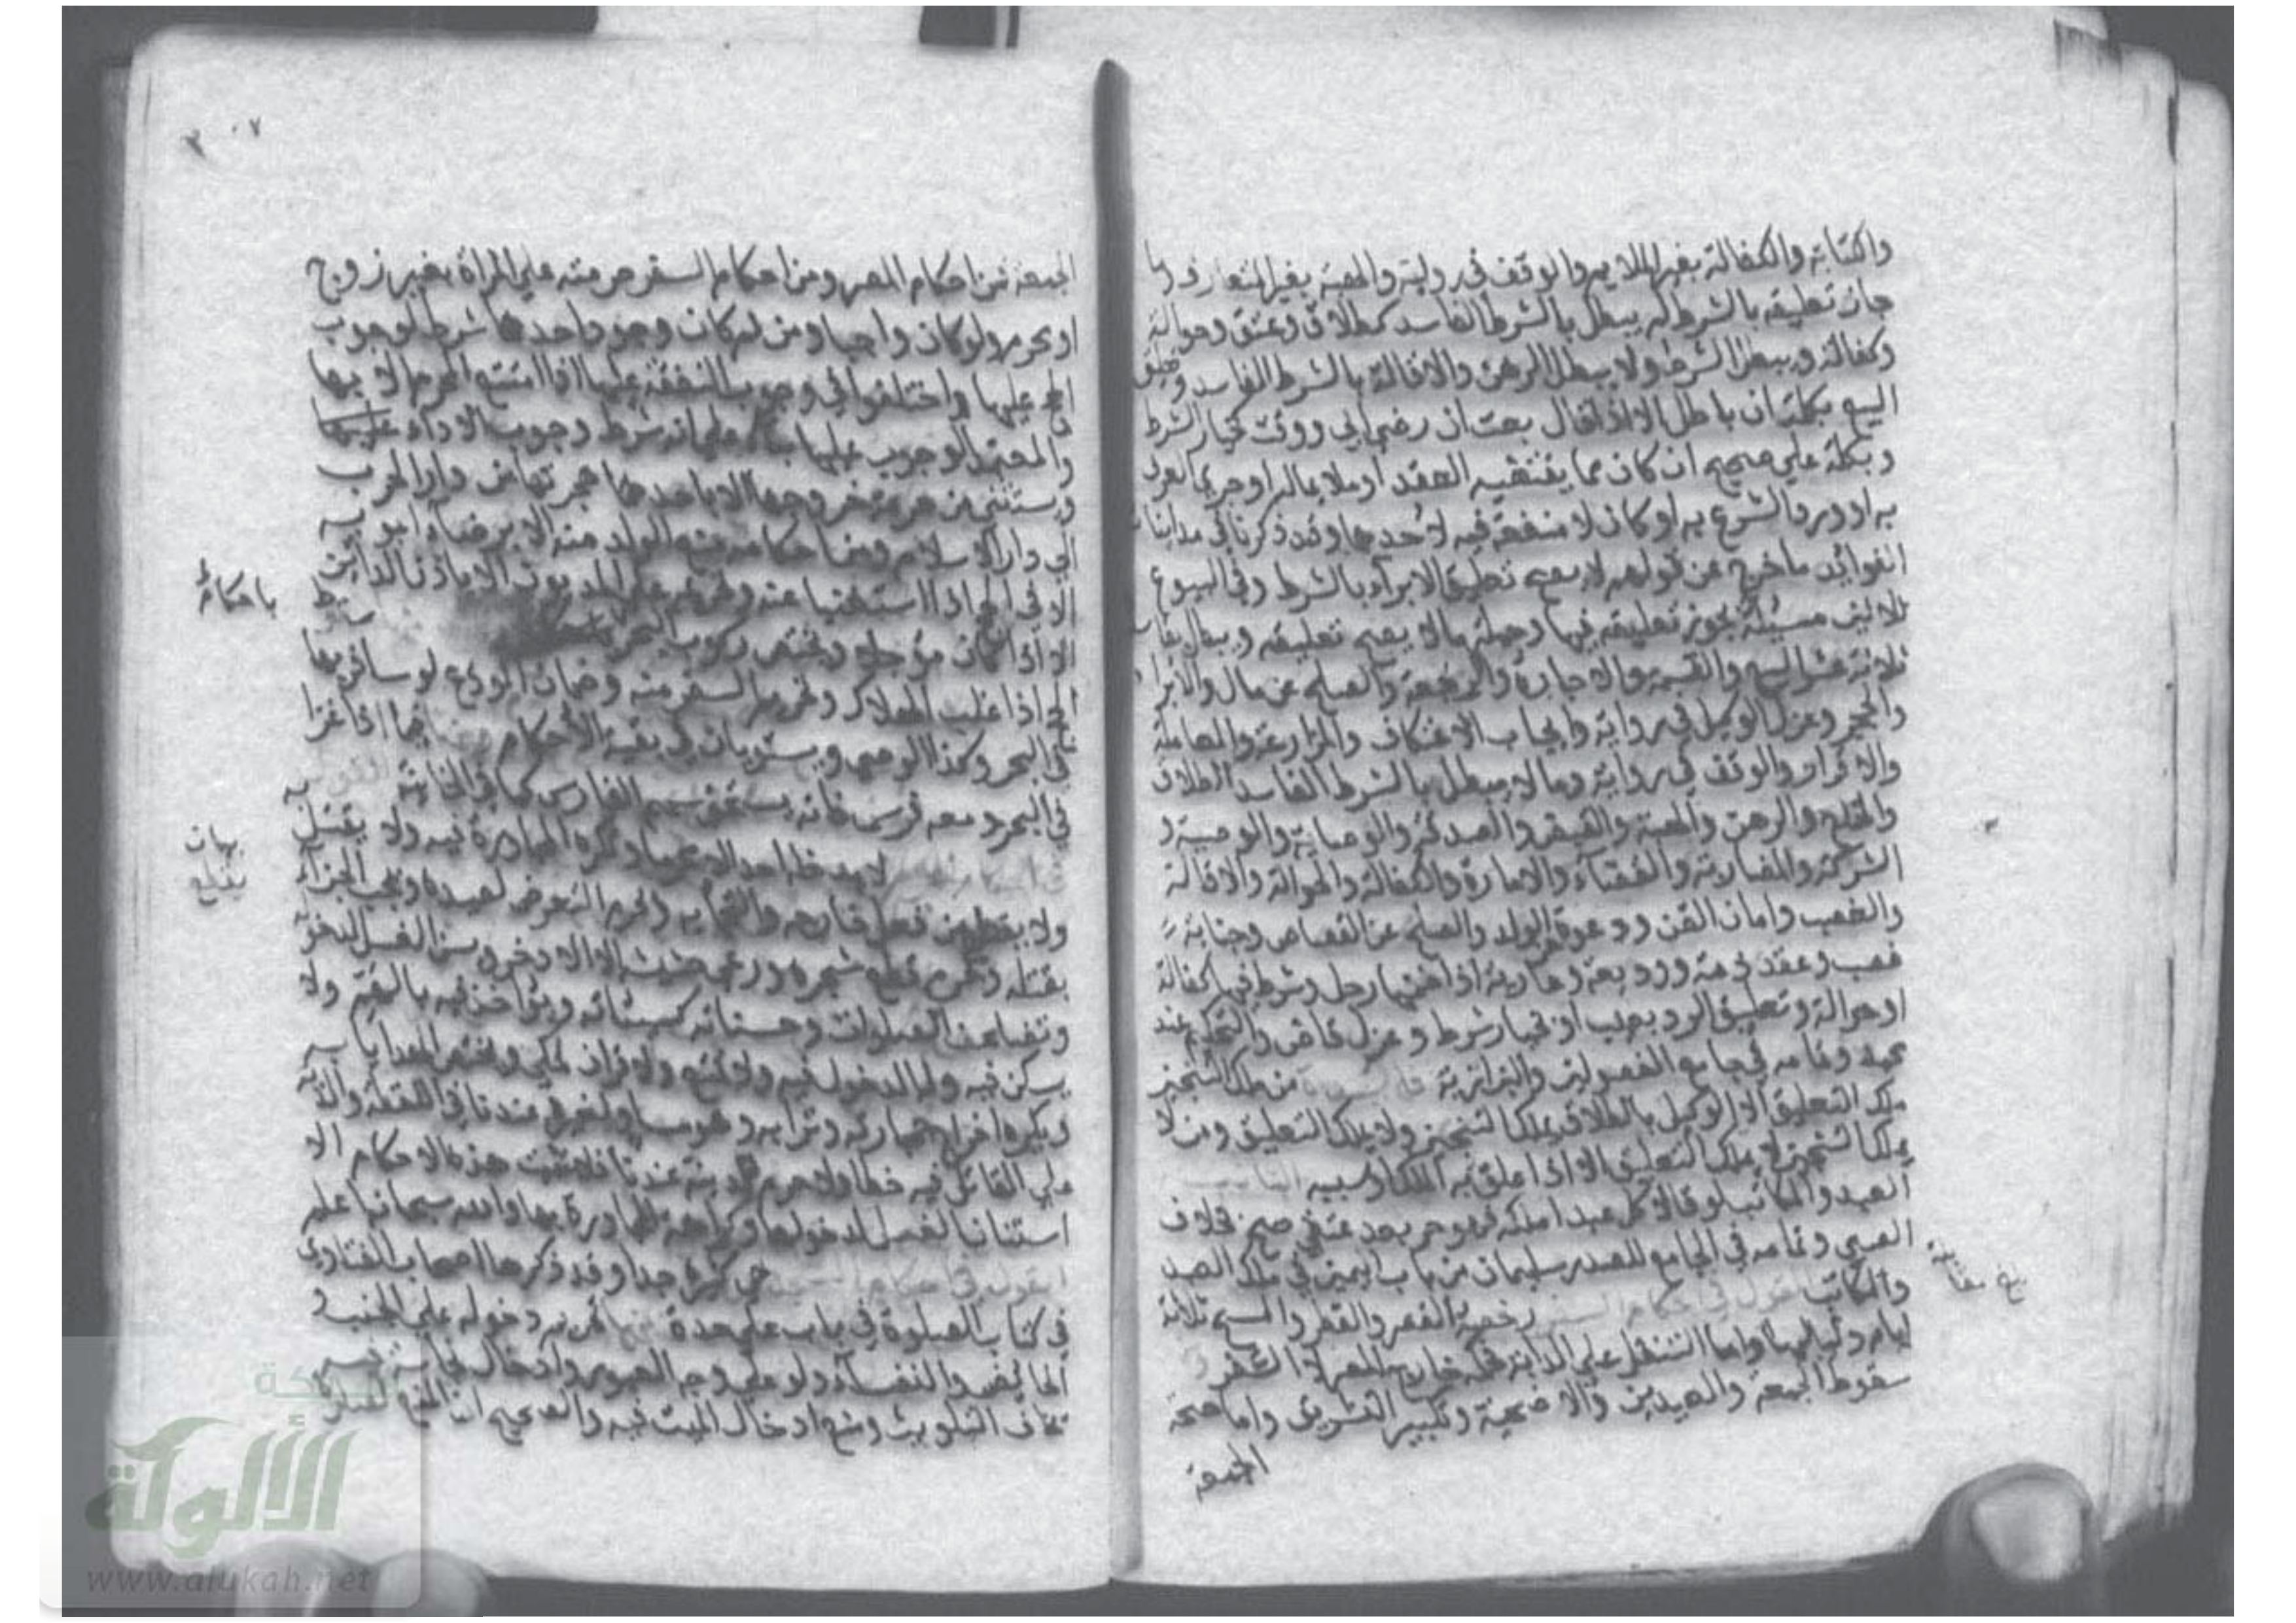 والكتابة والكفالة بغير الملايم والوقف في رواية والهبة بغير المتعارف وما
جاز تعليقه بالشرط لم يبطل بالشرط الفاسد كطلاق وعتق وحوالة
وكفالة ويبطل الشرط ولا يبطل الرهن والاقالة بالشرط الفاسد وتعليق
البيع بكلمة ان باطل الا اذا قال بعت ان رضي ابي ووقت كخيار الشرط
وبكلمة علي صحيح ان كان مما يقتضيه العقد او ملايما له او جري العرف
به او ورد الشرع به او كان لا منفعة فيه لاحدهما وقد ذكرنا في مداينات
الفوائد ما خرج عن قولهم لا يصح تعليق الابراء بالشرط وفي البيوع
ثلاثين مسئلة يجوز تعليقه فيها وجملة ما لا يصح تعليقه ويبطل بفاسده
ثلاثة عشر البيع والقسمة والاجارة والرجعة والصلح عن مال والابراء
والحجر وعزل الوكيل في رواية وايجاب الاعتكاف والمزارعة والمعاملة
والاقرار والوقف في رواية وما لا يبطل بالشرط الفاسد الطلاق
والخلع والرهن والهبة والقرض والصدقة والوصاية والوصية و
الشركة والمضاربة والقضاء والامارة والكفالة والحوالة والاقالة
والغصب وامان القن ودعوة الولد والصلح عن القصاص وجناية
غصب وعقد ذمة ووديعة وعارية اذا ضمنها رجل وشرط فيها كفالة
او حوالة وتعليق الرد بعيب او بخيار شرط وعزل قاض والتحكيم عند
محمد وتمامه في جامع الفصولين والبزازية من ملك التنجيز
ملك التعليق الا الوكيل بالطلاق يملك التنجيز ولا يملك التعليق ومن لا
يملك التنجيز لا يملك التعليق الا اذا علق به الملك او سببه
العبد والمكاتب لو قالا كل عبد املكه فهو حر بعد عتقي صح بخلاف
الصبي وتمامه في الجامع للصدر سليمان من باب اليمين في ملك العبد
والمكاتب القول في احكام السفر رخصة القصر والفطر والمسح ثلاثة
ايام ولياليها واما التنفل علي الدابة فحكم خارج المصر لا السفر و
سقوط الجمعة والعيدين والاضحية وتكبير التشريق واما صحة
الجمعة
بلغ مقابلة
٢٠٧
الجمعة فمن احكام المصر ومن احكام السفر حرمته علي المراة بغير زوج
او محرم ولو كان واجبا ومن ثم كان وجود احدهما شرطا لوجوب
الحج عليها واختلفوا في وجوب النفقة عليها اذا امتنع المحرم الا بها
والمعتمد الوجوب عليها بناء علي انه شرط وجوب الاداء عليها
ويستثني من حرمة خروجها الا باحدهما هجرتها من دار الحرب
الي دار الاسلام ومن احكامه منع الولد منه الا برضاء ابويه
الا في الحج اذا استغنيا عنه وتحريمه علي المديون الا باذن الداين
الا اذا كان مؤجلا ويختص ركوب البحر
الحج اذا غلب الهلاك وتحريم السفر منه وضمان المودع لو سافر بها
في البحر وكذا الوصي ويستويان في بقية الاحكام مما اذا غزا
في البحر ومعه فرس فانه يستحق سهم الفارس كما في الخانية
لا يدخله احد الا محرما وتكره المجاورة فيه ولا يقتل
ولا يقطع من فعل خارجه والتجا به ويحرم التعرض لصيده ويجب الجزاء
بقتله ويحرم قطع شجره ورعي حشيشه الا الاذخر ويسن الغسل لدخوله
وتضاعف الصلوات وحسناته كسيئاته ويؤاخذ فيه بالهم ولا
يسكن فيه ولا الدخول فيه ولا تمتع ولا قران لمكي ويختص الهدايا به
ويكره اخراج حجارته وترابه وهو مساو لغيره عندنا في اللقطة والدية
علي القاتل فيه خطا ولا حرم للمدينة عندنا فلا تثبت هذه الاحكام الا
استنان الغسل لدخولها وكراهة المجاورة بها والله سبحانه اعلم
القول في احكام المسجد هي كثيرة جدا وقد ذكرها اصحاب الفتاوي
في كتاب الصلوة في باب علي حدة تحريم دخوله علي الجنب و
الحائض والنفساء ولو علي وجه العبور وادخال نجاسة فيه
يخاف التلويث ومنع ادخال الميت فيه والصحيح ان المنع لصلاة
باحكام
بيان
الألوكة
www.alukah.net